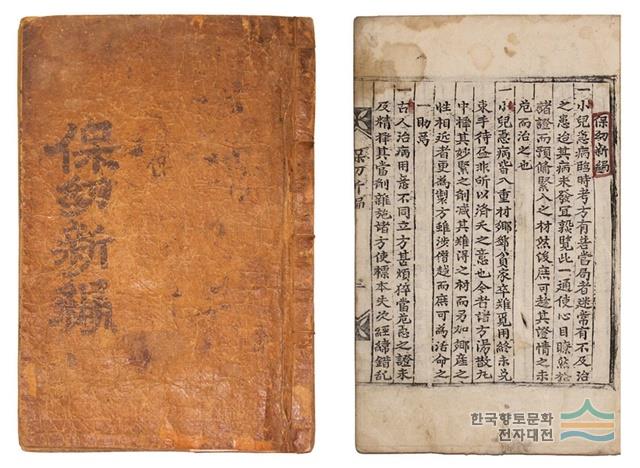 保幼新編
保幼新編
一小兒急病臨時考方有昔當局者迷常有不及治
之患迨其病未發宜熟覽此一通使心目瞭然於
諸證而預備緊入之材然後庶可趁其證情之未
危而治之也
一小兒惡病皆入重材鄉鄰貧家卒難覓用終未免
束手待盡非所以濟夭之意也今者諸方湯散丸
中擇其妙緊之劑減其難得之材而另加鄉產之
性相近者更爲製方雖涉僭越而庶可爲活命之
一助焉
一古人治病用落不同立方甚煩猝當危急之證未
及精擇其當劑雜施諸方使標本失次經緯錯亂
保幼新編
한국향토문화
전자대전